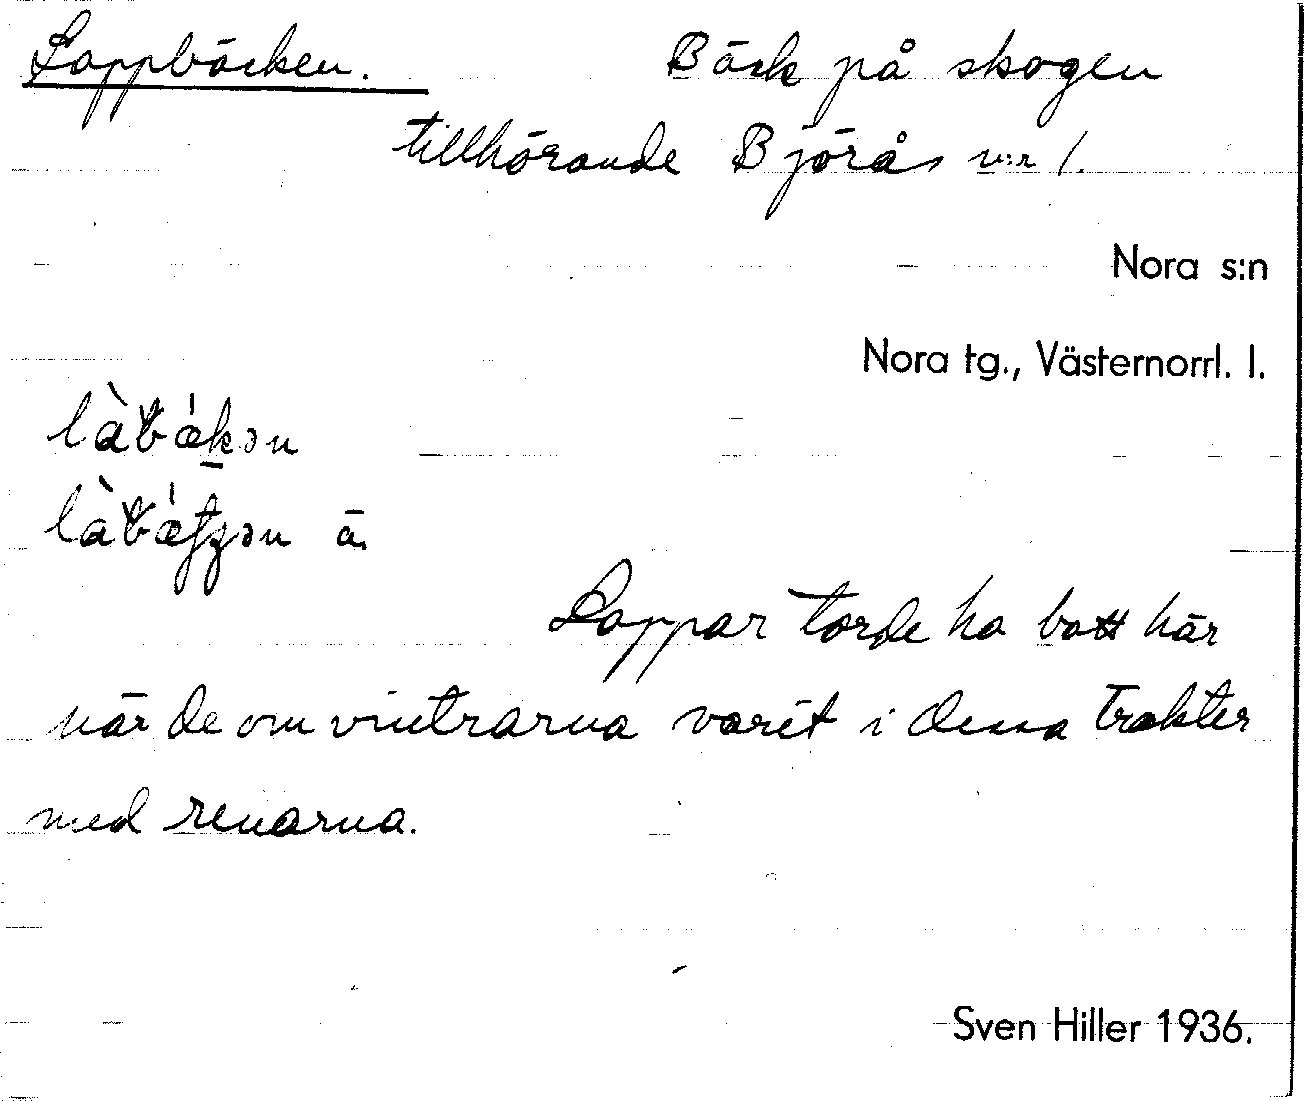 Lappbäcken. Bäck på skogen
tillhörande Björås n:r 1.
Nora s:n
Nora tg., Västernorrl. l.
làbákən
ä.
Lappar torde ha bott här
när de om vintrarna varit i dessa trakter
med renarna.
Sven Hiller 1936.